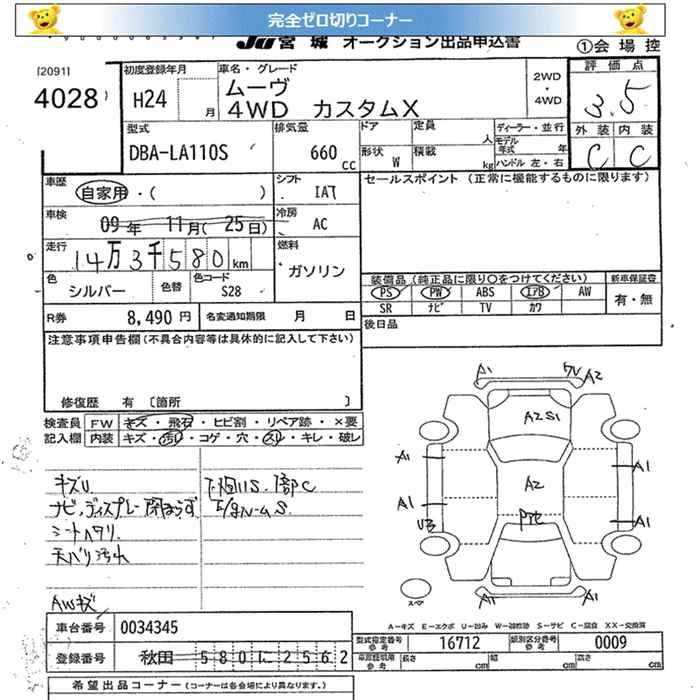 完全ゼロ切りコーナー
JU 宮 城 オークション出品申込書
①会 場 控
[2091]
4028
初度登録年月
H24
月
車名・グレード
ムーヴ
4WD カスタムX
2WD
・
4WD
評 価 点
3.5
外 装
内 装
C
C
型式
DBA-LA110S
排気量
660
CC
ドア
定員
人
形状
W
積載
kg
ディーラー・並 行
モデル
年式
年
ハンドル 左・右
車歴
自家用・(
)
シフト
IAT
セールスポイント (正常に機能するものに限ります)
車検
09 年
11 月(
25 日)
冷房
AC
走行
14万3千580km
燃料
ガソリン
色
シルバー
色替
色コード
S28
装備品 (純正品に限り○をつけてください)
新車保証書
PS
PW
ABS
エアB
AW
有・無
SR
ナビ
TV
カワ
R券
8,490 円
名変通知期限
月
日
後日品
注意事項申告欄(不具合内容等は具体的に記入して下さい)
修復歴 有 〔箇所
〕
検査員
記入欄
FW
キズ・飛石・ヒビ割・リペア跡・×要
内装
キズ・汚れ・コゲ・穴・スレ・キレ・破レ
キズU
ナビ,ディスプレー閉まらず
シートヘタリ
天バリ汚れ
AWキズ
下廻りS.1部C
A1
A2
A2 S1
A1
A1
A2
A1
A1
A1
A1
スペア
A−キズ E−エクボ U−凹み W−補修跡 S−サビ C−腐食 XX−交換済
車台番号
0034345
登録番号
秋田 580 に 2562
型式指定番号
参考
16712
類別区分番号
参考
0009
車庫証明用
参考
長さ
cm
幅
cm
高さ
cm
希 望 出 品 コーナー (コーナーは各会場により異なります。)